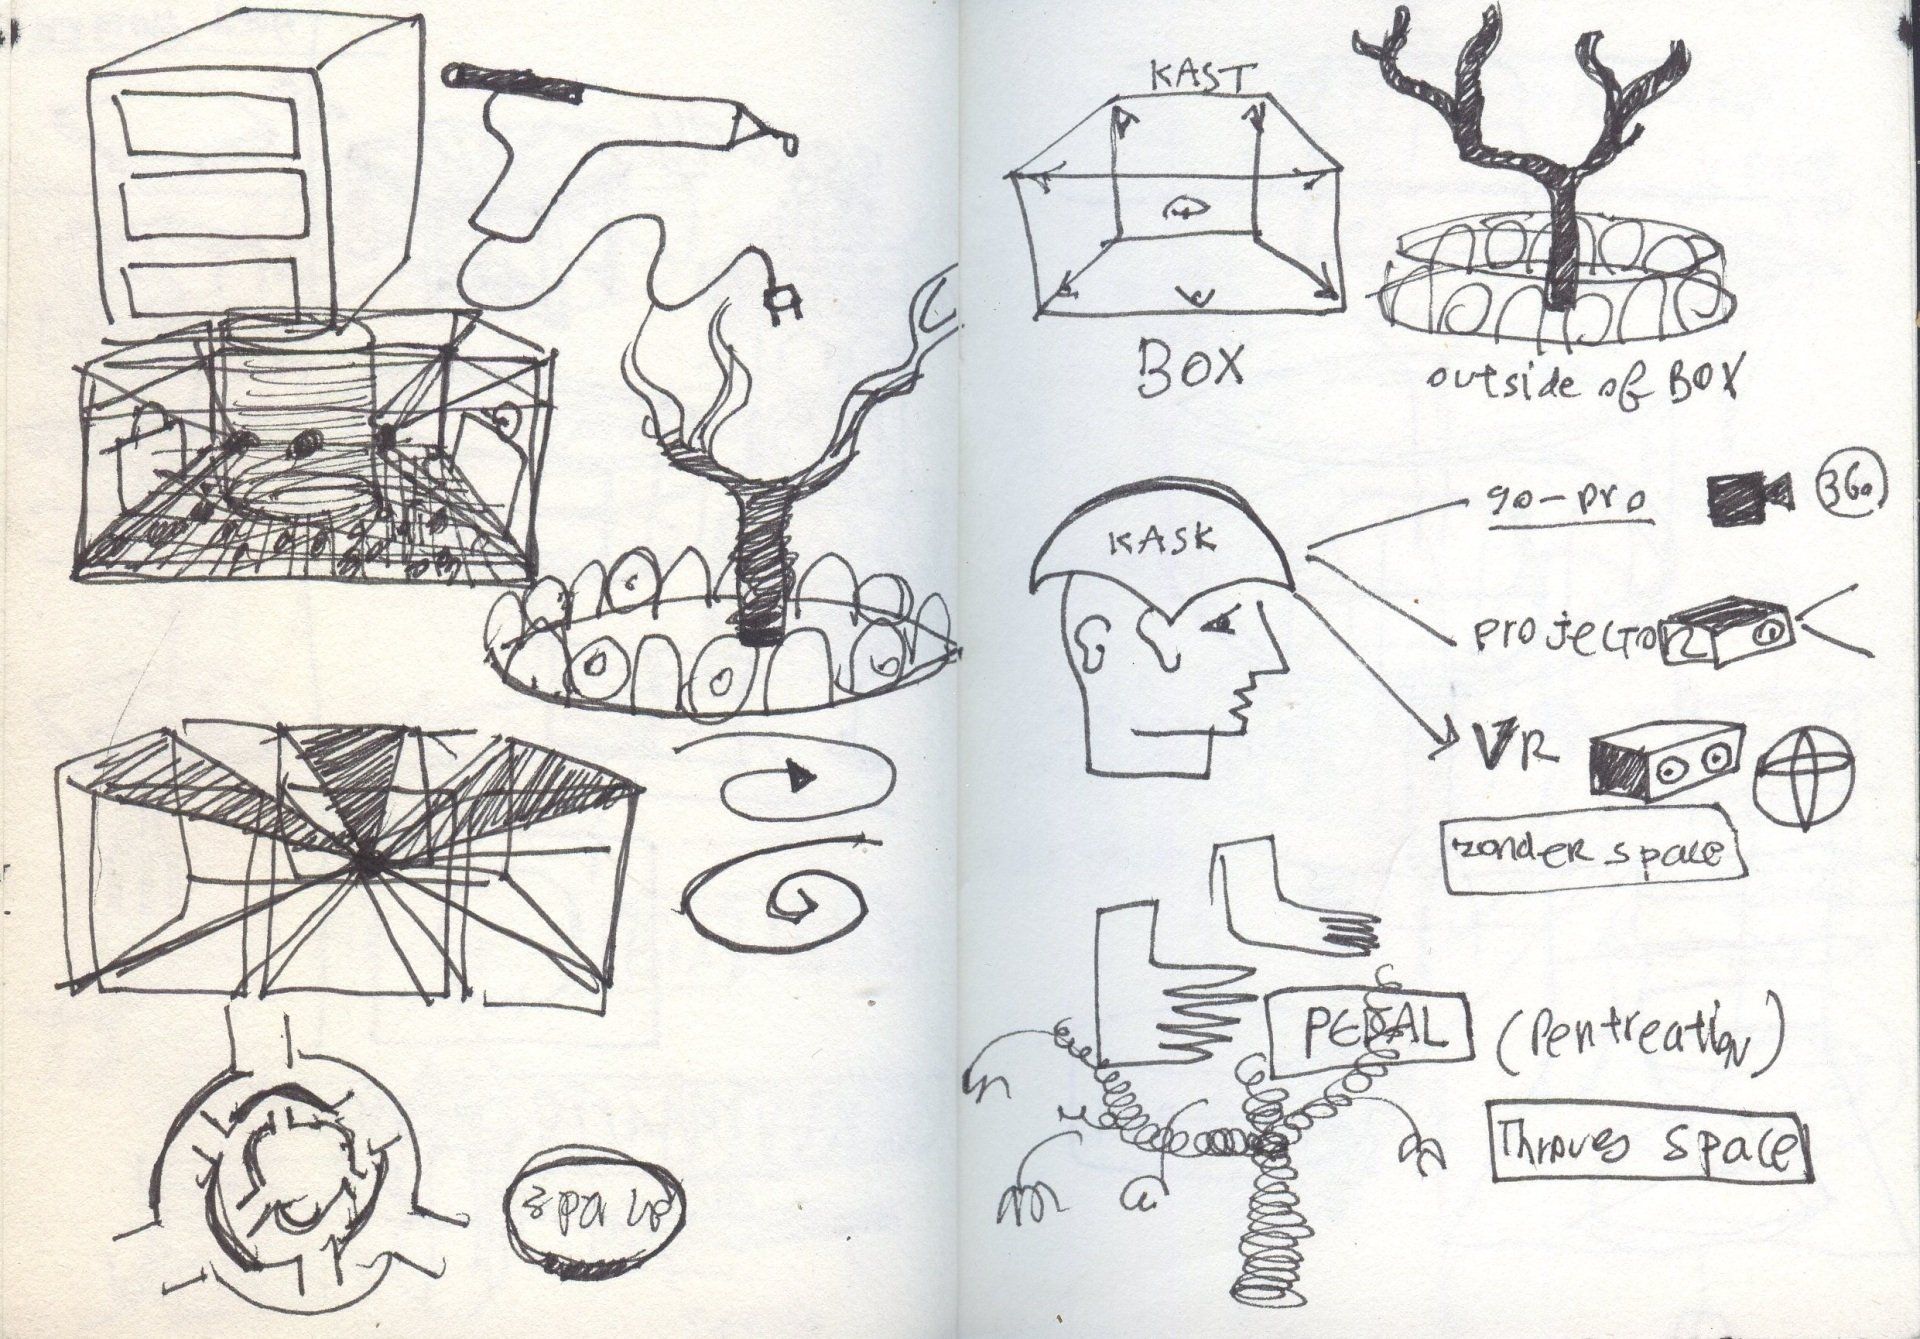 KAST
BOX
outside of BOX
KASK
go-pro
360
projector
VR
zonder space
PEDAL
(Pentreation)
Throug space